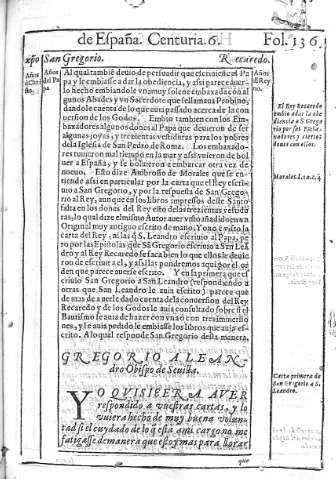 de España. Centuria.6. Fol.136.
San Gregorio. Recaredo.
Al qual tambiē deuio de persuadir que escriuiesse al Pa
pa y le embiasse a dar la obediencia, y assi parece auer
lo hecho embiandole vna muy solene embaxada con
algunos Abades y vn Sacerdote que se llamaua Probino,
dandole cuenta de lo que auia passado acerca de la con
uersion de los Godos. Embio tambien con los Em
baxadores algunos dones al Papa que deuieron de ser
algunas joyas, y trezientas vestiduras para los pobres
dela Iglesia de San Pedro de Roma. Los embaxado
res tuuieron mal tiempo en la mar y assi vuieron de bol
uer a España, y se boluieron a embarcar otra vez de
nueuo. Esto dize Ambrosio de Morales que se en
tiende assi en particular por la carta que el Rey escri
uio a San Gregorio, y por la respuesta de San Grego
rio al Rey, aunque en los libros impressos deste Santo
falta en los dones del Rey esto delas trezientas vestidu
ras, lo qual dize el mismo Autor auer visto añadido en vn
Original muy antiguo escrito de mano. Yo no è visto la
carta del Rey, ni la q̄ S. Leandro escriuio al Papa, pe
ro por las Epistolas que Sā Gregorio escriuio a San Leā
dro y al Rey Recaredo se saca bien lo que ellos le deuie
ron de escriuir a el, y assi las pondremos aqui por el or
den que parece auerse escrito. Y en la primera que es
criuio San Gregorio a San Leandro (respondiendo a
otras que San Leandro le auia escrito) parece que
de mas de auerle dado cuenta de la conuersion del Rey
Recaredo y de los Godos le auia consultado sobre si el
Bautismo se auia de hazer con vna ò con tres immersio
nes, y le auia pedido le embiasse los libros que auia es
crito. Alo qual responde San Gregorio desta manera.
El Rey Recaredo
embia a dar la obe
diencia a S. Grego
rio por sus Emba
xadores y ciertos
dones con ellos.
Morales.l.12.c.4
GREGORIO A LEAN-
dro Obispo de Seuilla.
Carta primera de
San Gregorio a S.
Leandro.
YO QVISIERA AVER
respondido a vuestras cartas, y lo
vuiera hecho de muy buena volun
tad si el cuydado de lo que esta a mi cargo no me
fatigasse de manera que estoy mas para llorar
que